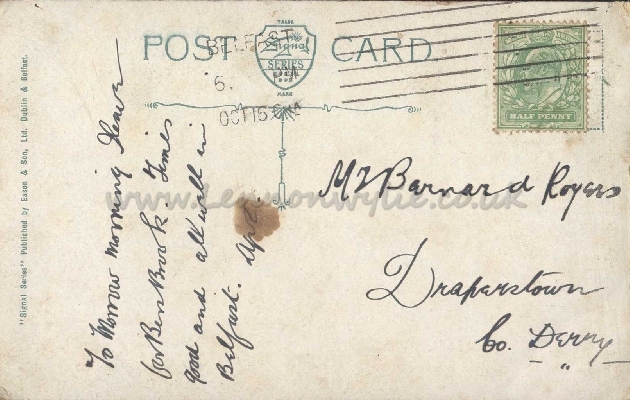 POST CARD
TRADE
The Signal
SERIES
MARK
BELFAST
OCT 15
HALF PENNY
To Morrow morning Leave
for Ben Brook. Times
good and all well in
Belfast.
Mr Barnard Rogers
Draperstown
Co. Derry
www.Lennonwylie.co.uk
"Signal Series" Published by Eason & Son, Ltd. Dublin & Belfast.